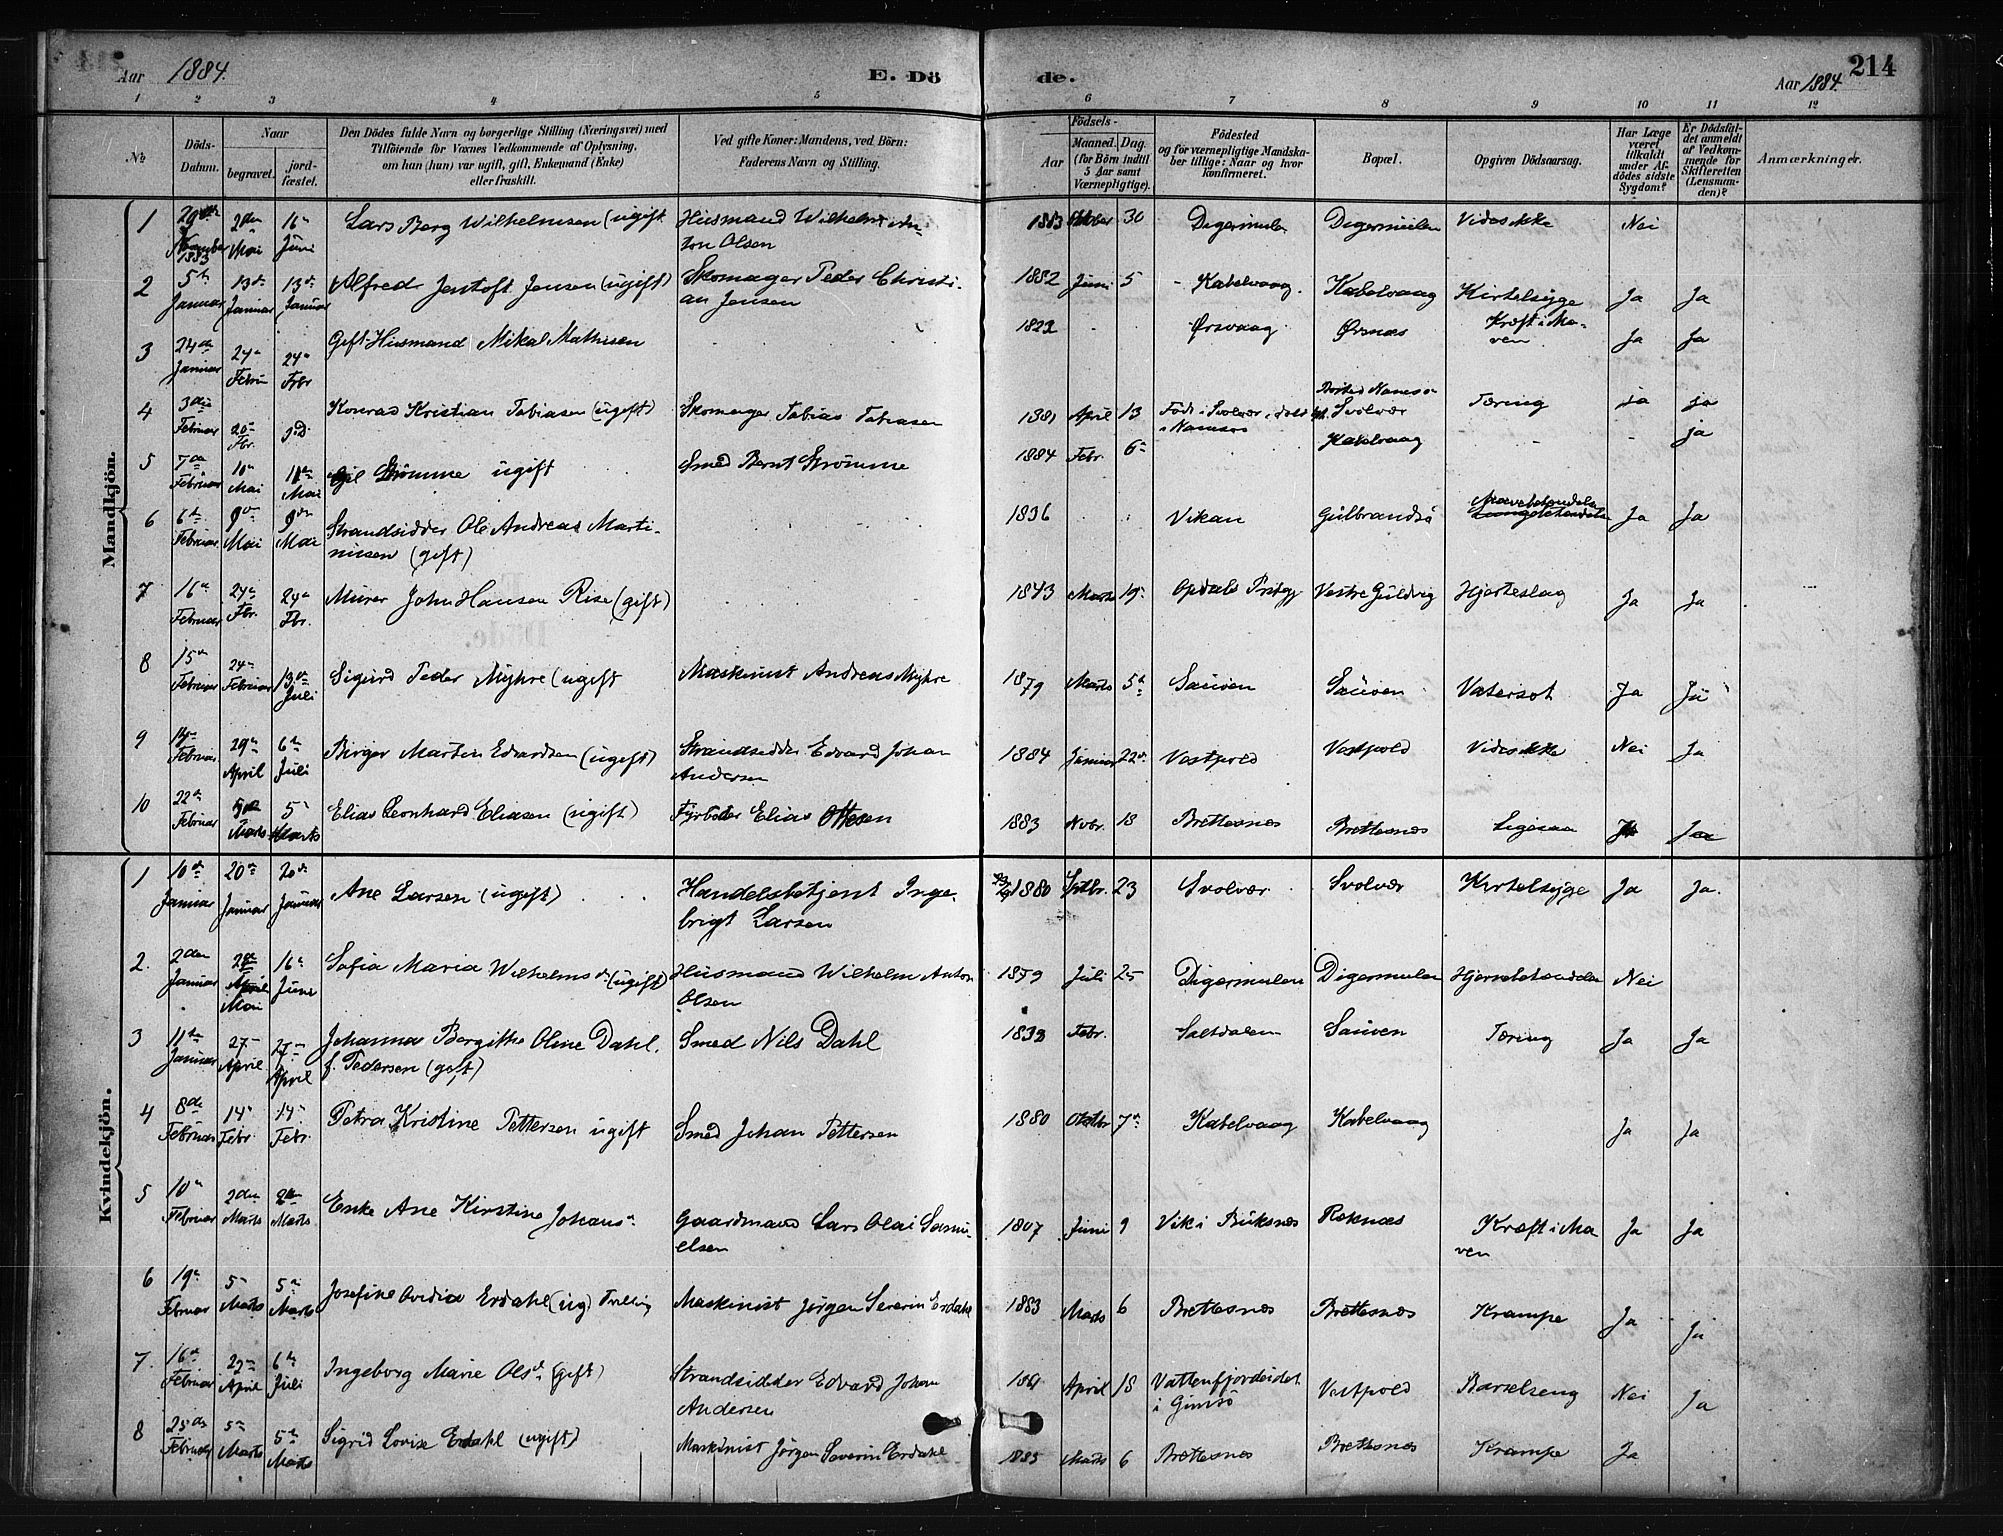 Aar 1884. E. Dö de. Aar 1884. 214
1 2 3 4 5 6 7 8 9 10 11 12
№
Döds-Datum.
Naar
begravet.
jordfæstet.
Den Dödes fulde Navn og borgerlige Stilling (Næringsvei) med
Tilföiende for Voxnes Vedkommende af Oplysning,
om han (hun) var ugift, gift, Enkemand (Enke)
eller fraskilt.
Ved gifte Koner: Mandens, ved Börn:
Faderens Navn og Stilling.
Födsels-
Aar
Maaned. (for Börn indtil 5 Aar samt Værnepligtige).
Dag.
Födested
og for værnepligtige Mandskaber tillige: Naar og hvor konfirmeret.
Bopæl.
Opgiven Dödsaarsag.
Har Læge været tilkaldt under Afdödes sidste Sygdom?
Er Dödsfaldet anmeldt af Vedkommende for Skifteretten (Lensmanden)?
Anmærkninger.
Mandkjön.
1 29de November 1883 2den Mai 16 Juni Lars Berg Wilhelmsen (ugift Husmand Wilhelm Anton Olsen 1883 Oktober 30 Digermulen Digermulen Vides ikke Nei
2 5te Januar 13de Januar 13de Januar Alfred Jentoft Jensen (ugift) Skomager Peder Christian Jensen 1882 Juni 5 Kabelvaag Kabelvaag Kirtelsyge Ja Ja
3 24de Januar 24 Febru 24 Febr Gift Husmand Mikal Mathisen 1822 Ørsvaag Ørsnæs Kræft i Maven Ja Ja
4 3die Februar 20 Fbr. Konrad Kristian Tobiasen (ugift) Skomager Tobias Tobiasen 1881 April 13 Född i Svolvær, døbt i Namsos Bosted Namsos Svolvær Tæring ja ja
5 7de Februar 10 Mai 11 Mai Strømme ugift Smed Bernt Strømme 1884 Febr. 6 Kabelvaag ja
6 6te Februar 9de Mai 9de Mai Strandsidder Ole Andreas Martinussen (gift) 1836 Vikan Gulbrandsø Ja Ja
7 16 Februar 24 Fbr. 24 Fbr. Murer John Hansen Rise (gift) 1843 Marts 19 Opdals Prstgj Vestre Guldvig Hjerteslag Ja Ja
8 15 Februar 24 Februar 13 Juli Sigurd Peder Myhre (ugift Maskinist Andreas Myhre 1879 Marts 5 Sauøen Sauøen Vatersot Ja Ja
9 Februar 29 April 6te Juli Birger Martin Edvardsen (ugift) Strandsidder Edvard Johan Andersen 1884 Januar 22 Vestpold Vestpold Vides ikke Nei Ja
10 22 Februar 5 Marts 5 Marts Elias Leonhard Eliasen (ugift) Fyrbøder Elias Ottesen 1883 Nvbr. 18 Brettesnes Brettesnæs Ligesaa Ja
Kvindekjön.
1 10de Januar 20 Januar 20de Januar Ane Larsen (ugift) Handelsbetjent Ingebrigt Larsen 1880 Sptbr. 23 Svolvær Svolvær Kirtelsyge Ja Ja.
2. 2den Januar Mai 16 June Sofia Maria Wilhelmsdr (ugift) Husmand Wilhelm Anton Olsen 1879 Juli 25 Digermulen Digermulen Nei
3 11te Januar 27 April 27 April Johanna Bergithe Oline Dahl, f. Pedersen (gift) Smed Nils Dahl 1832 Febr. Saltdalen Sauøen Tæring Ja Ja
4 8de Februar 14 Febr. 14 Febr. Petra Kristine Pettersen ugift Smed Johan Pettersen 1880 Oktbr 7 Kabelvaag Kabelvaag Ja Ja
5 10 Februar 2den Marts 2den Marts Enke Ane Kirstine Johans Gaardmand Lars Olai Samuelsen 1807 Juni 9 Vik i Buksnæs Røknæs Kræft i Maven Ja Ja
6 19 Februar 5 Marts 5 Marts Josefine Ovidia Erdahl (ug) Trilling Maskinist Jörgen Severin Erdahl 1883 Marts 6 Brettesnæs Brettesnæs Krampe Ja Ja
7. 16 Februar 29 April 6te Juli Ingeborg Marie Olsd (gift) Strandsidder Edvard Johan Andersen April 18 Vattenfjordeidet i Gimsø Vestpold Barselseng Nei Ja
8 25de Februar 5 Marts 5te Marts Sigrid Lovise Erdahl (ugift) Maskinist Jörgen Severin Erdahl 1883 Marts 6 Brettesnæs Brettesnæs Krampe Ja